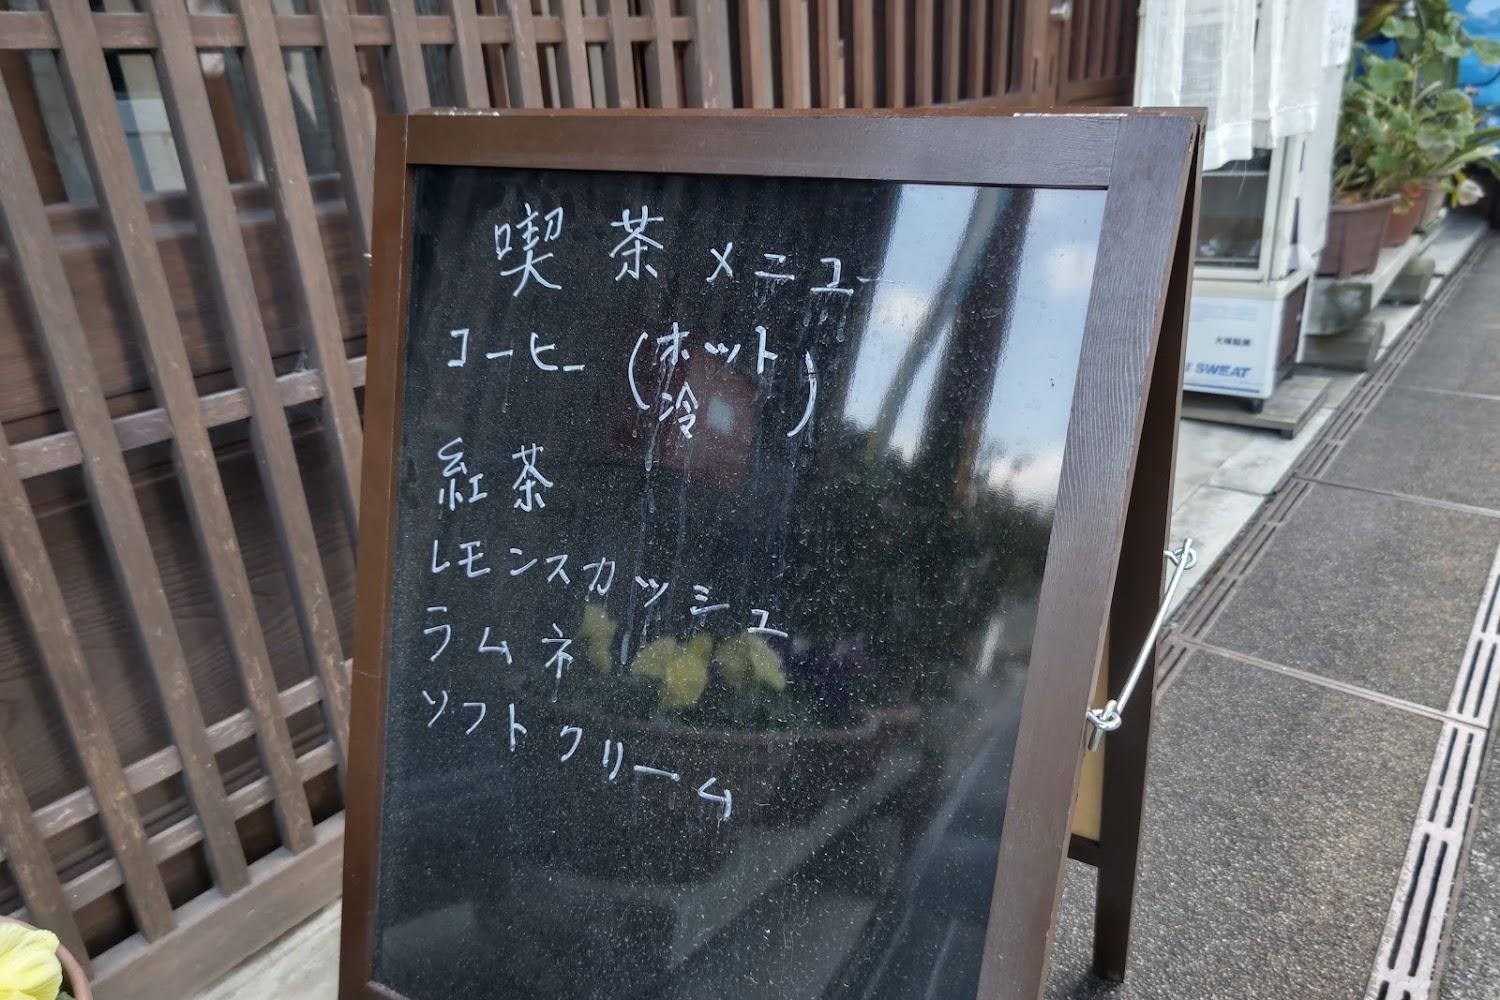 喫茶メニュー
コーヒー (ホット
冷)
紅茶
レモンスカッシュ
ラムネ
ソフトクリーム
大塚製薬
SWEAT